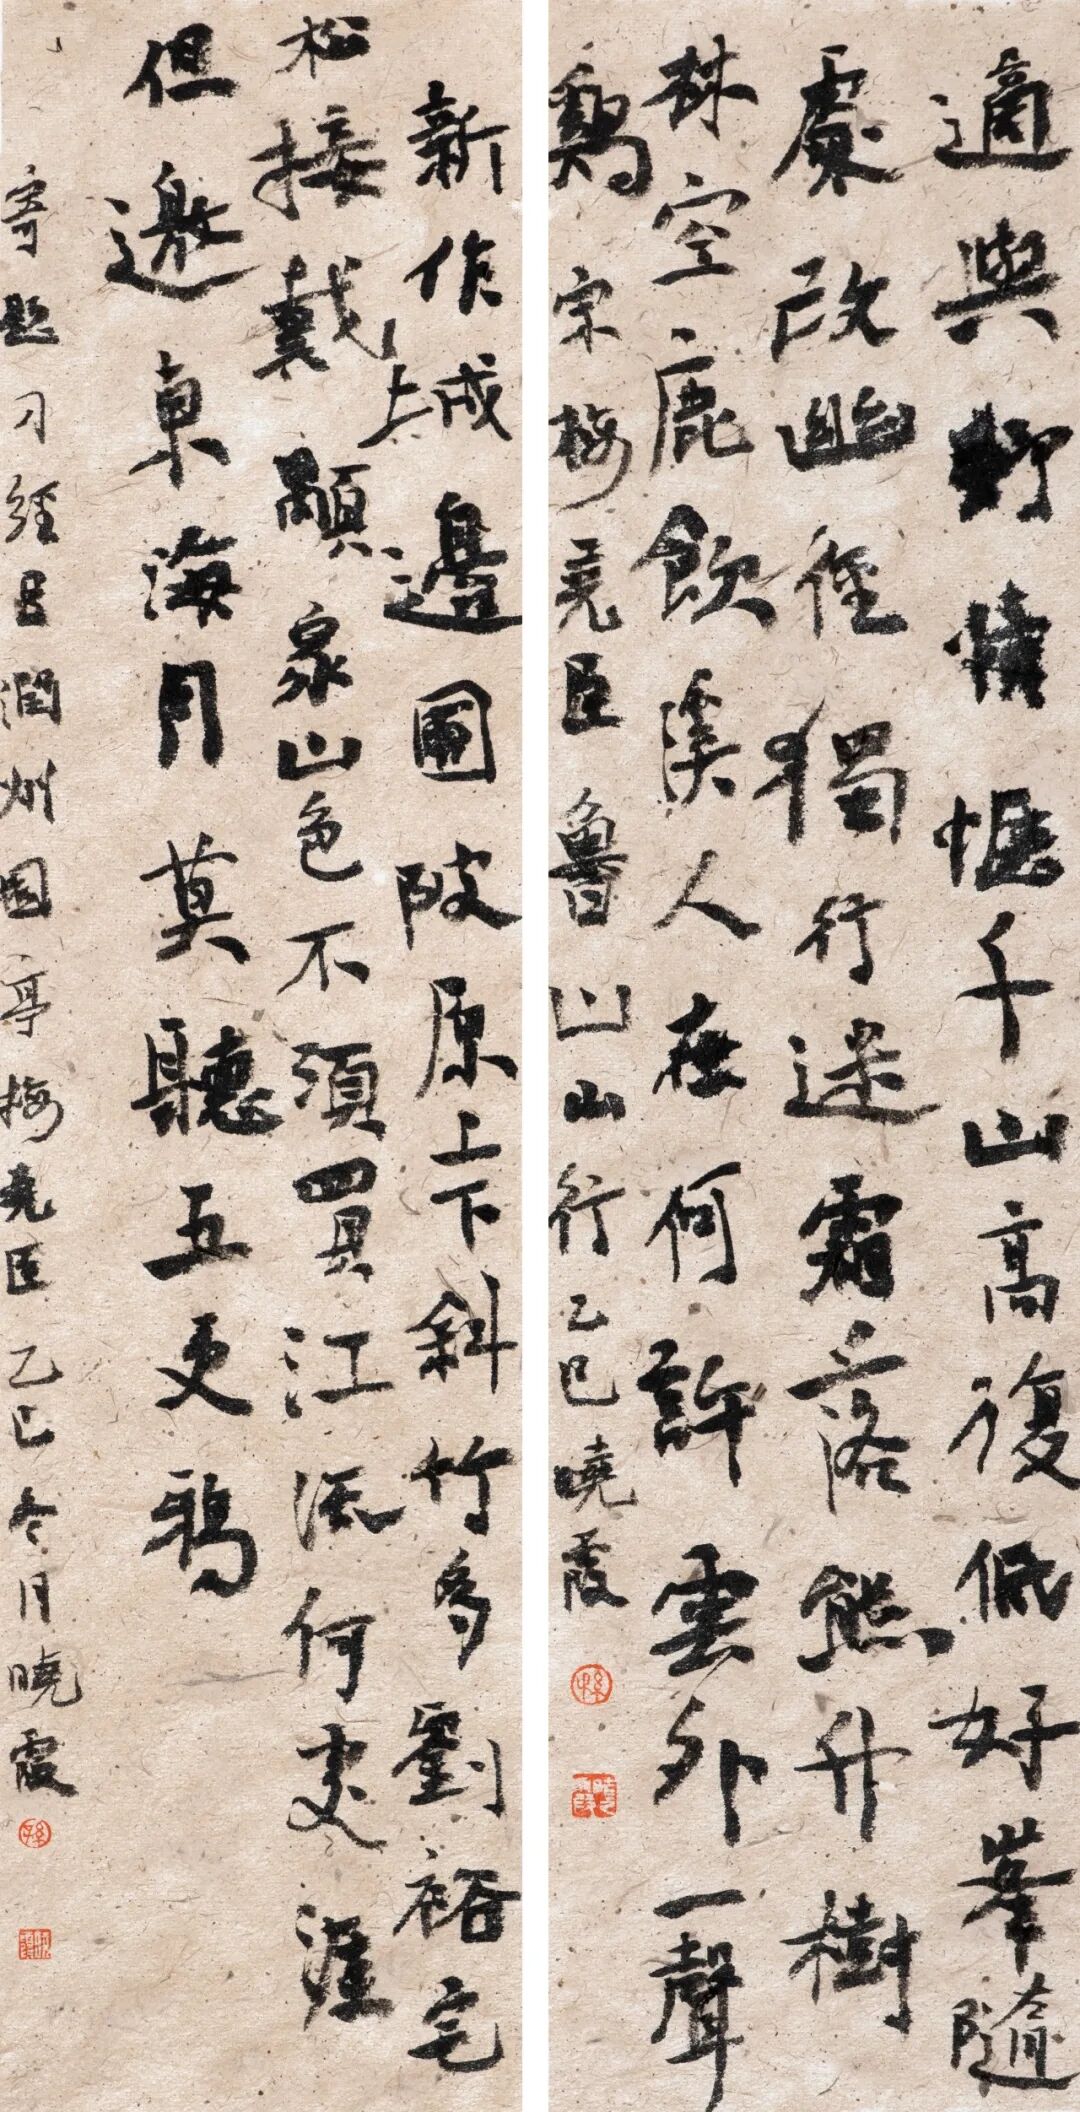 適與野情愜千山高復低好峯隨
處改幽徑獨行迷霜落熊升樹
林空鹿飲溪人在何許雲外一聲
鷄宋梅堯臣魯山山行乙巳曉霞
新作城邊圃陂原上下斜竹多劉裕宅
松接戴顒家山色不須買江流何處涯
但邀東海月莫聽五更鴉
寄題刁經臣潤州園亭梅堯臣乙巳冬月曉霞